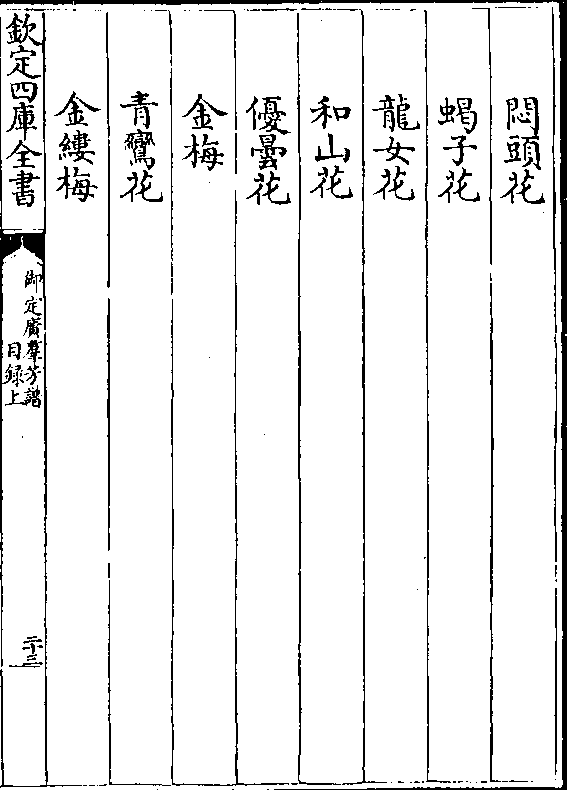 悶頭花
蝎子花
龍女花
和山花
優曇花
金梅
青鸞花
金縷梅
欽定四庫全書
御定廣羣芳譜
目録上
二十三